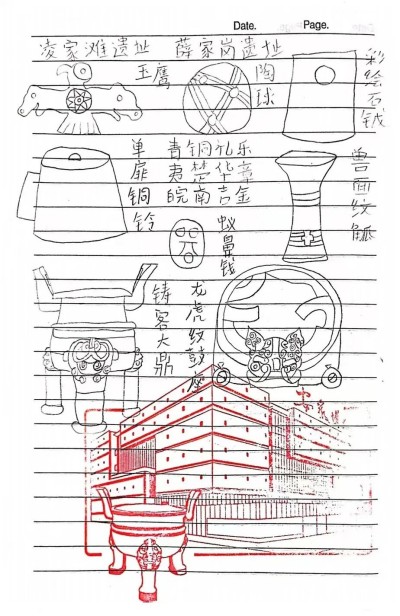 Date. Page.
凌家滩遗址 薛家岗遗址
玉鹰
陶球
彩绘石钺
单扉铜铃
青铜礼乐
夷楚华章
皖南吉金
兽面纹觚
蚁鼻钱
铸客大鼎
龙虎纹鼓座